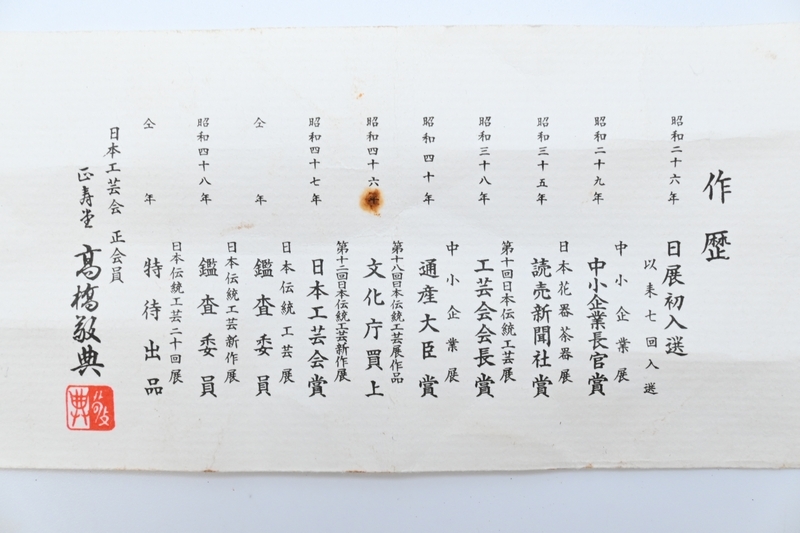 作歴
昭和二十六年
日展初入選
以来七回入選
昭和二十九年
中小企業展
中小企業長官賞
昭和三十五年
日本花器茶器展
読売新聞社賞
昭和三十八年
第十回日本伝統工芸展
工芸会会長賞
昭和四十年
中小企業展
通産大臣賞
昭和四十六年
第十八回日本伝統工芸展作品
文化庁買上
昭和四十七年
第十二回日本伝統工芸新作展
日本工芸会賞
仝年
日本伝統工芸展
鑑査委員
昭和四十八年
日本伝統工芸新作展
鑑査委員
仝年
日本伝統工芸二十回展
特待出品
日本工芸会 正会員
正寿堂 高橋敬典
敬典